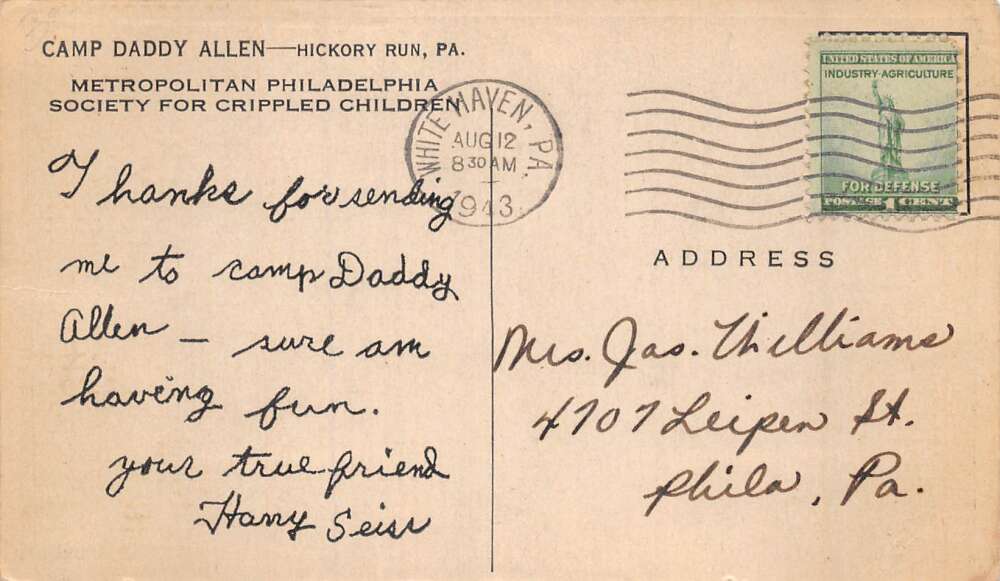 CAMP DADDY ALLEN—HICKORY RUN, PA.
METROPOLITAN PHILADELPHIA
SOCIETY FOR CRIPPLED CHILDREN
Thanks for sending
me to camp Daddy
Allen – sure am
having fun.
your true friend
Harry Seiss
WHITE HAVEN, PA.
AUG 12
8 30 AM
1943
UNITED STATES OF AMERICA
INDUSTRY·AGRICULTURE
FOR DEFENSE
POSTAGE 1 CENT
ADDRESS
Mrs. Jas. Williams
4707 Leipen St.
Phila, Pa.